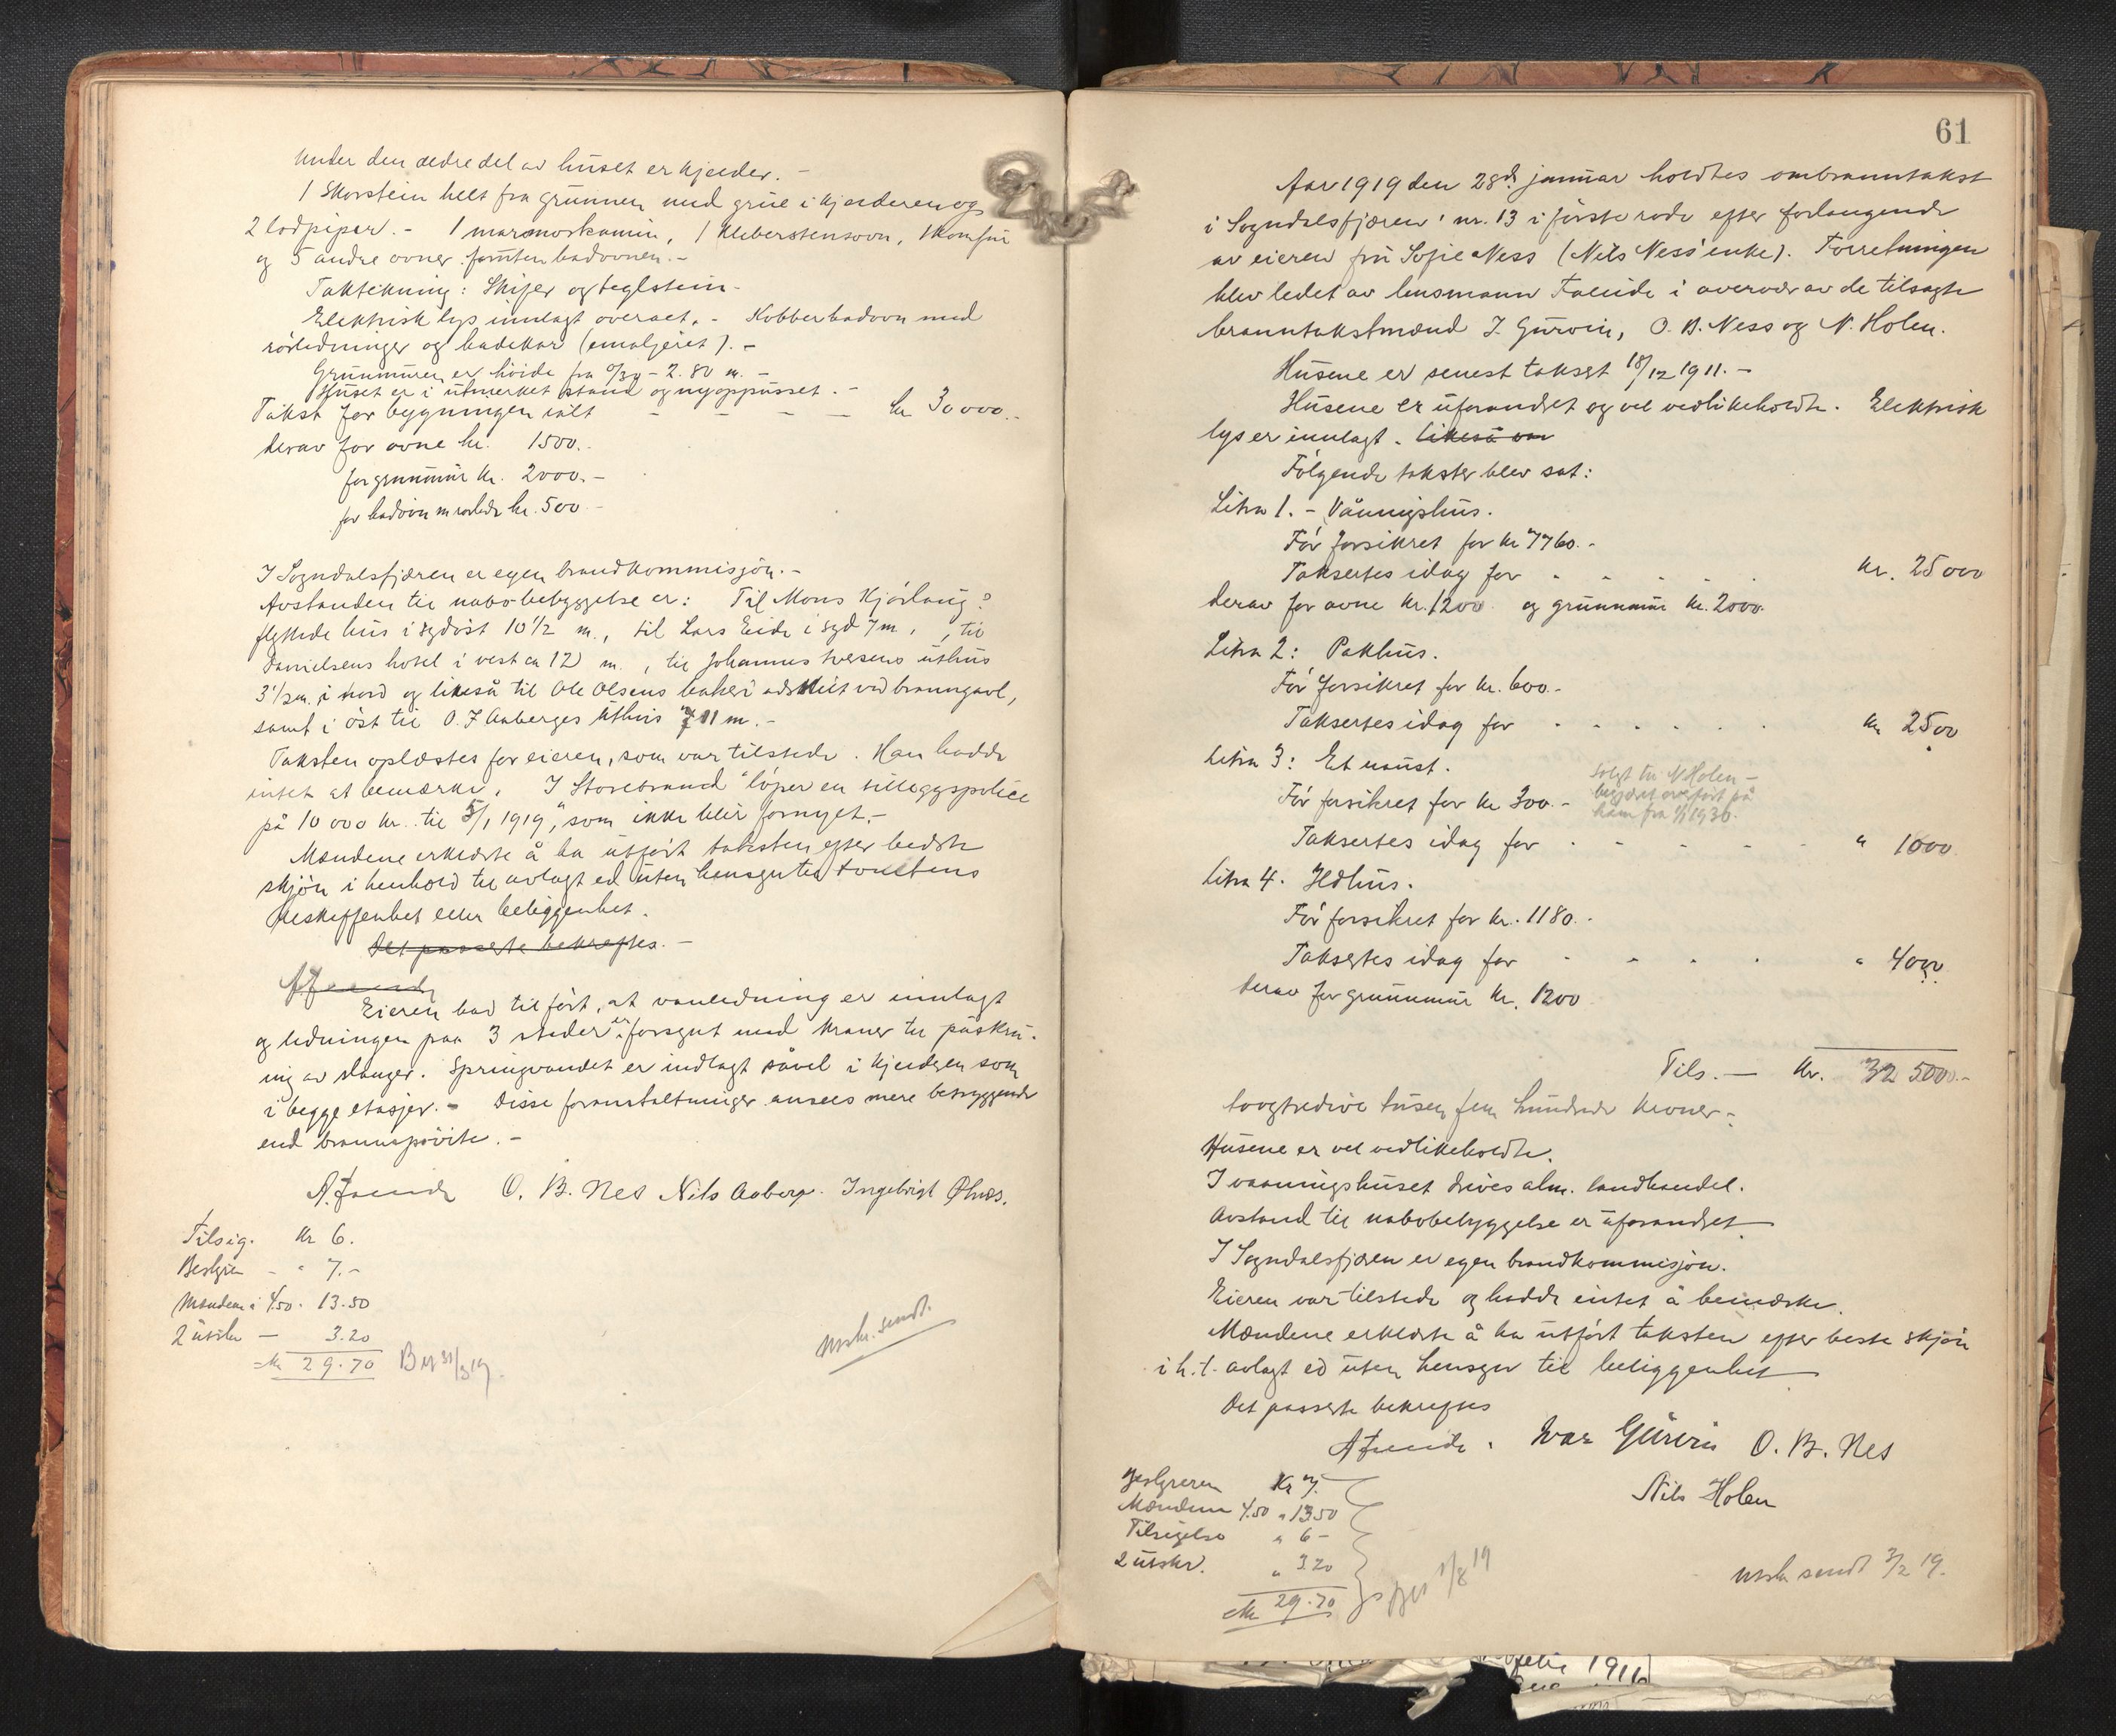 Under den ældre del av huset er kjelder. -
1 skorstein helt fra grunnen med grue i kjelderen og
2 lodpiper. - 1 marmorkamin, 1 kleberstensovn, 1 komfur
og 5 andre ovner foruten badovnen. -
Taktekning: Skifer og teglstein. -
Elektrisk lys innlagt overalt. - Kobberbadovn med
rörledninger og badekar (emaljeret). -
Grunnmuren er höide fra 0/30 - 2.80 m. -
Huset er i utmerket stand og nyoppusset. -
Takst for bygningen ialt - - - - kr 30000.-
derav for ovne kr. 1500.-
for grunnmur kr. 2000.-
for badovn m rörledn kr. 500 -
I Sogndalsfjæren er egen brandkommisjon. -
Avstanden til nabobebyggelse er: Til Mons Kjörlaug's
flyttede hus i sydöst 10 1/2 m., til Lars Eide i syd 7 m., til
Danielsens hotel i vest ca 12 m., til Johannes Iversens uthus
3 1/2 m. i nord og likeså til Ole Olsens bakeri adskilt ved branngavl,
samt i öst til O. J Aaberges uthus 11 m. -
Taksten oplæstes for eieren, som var tilstede. Han hadde
intet at bemærke. I "Storebrand" löper en tilleggspolice
på 10 000 kr. til 5/1 1919, som ikke blir fornyet. -
Mændene erklærte å ha utfört taksten efter bedste
skjön i henhold til avlagt ed uten hensyn til tomtens
beskaffenhet eller beliggenhet.
Det passerte bekreftes. -
A Faleide
Eieren bad tilfört, at vannledning er innlagt
og ledningen paa 3 steder er forsynt med kraner til påskru-
ing av slanger. Springvandet er indlagt såvel i kjelderen som
i begge etasjer. - Disse foranstaltninger ansees mere betryggende
end brannspröite. -
A. Faleide O. B. Nes Nils Aaberge. Ingebrigt Ølnes.
Tilsig. kr 6.
Bestyrer - " 7.-
Mændene à 4.50. 13.50
2 utskr - 3.20
kr 29.70 Bet 31/3 19.
Utskr. sendt.
61
Aar 1919 den 28de januar holdtes ombranntakst
i Sogndalsfjæren nr. 13 i förste rode efter forlangende
av eieren fru Sofie Ness (Nils Ness' enke). Forretningen
blev ledet av lensmann Faleide i overvær av de tilsagte
branntakstmænd I. Gurvin, O. B. Ness og N. Holen.
Husene er senest taksert 18/12 1911. -
Husene er uforandret og vel vedlikeholdte. Elektrisk
lys er innlagt. Likeså var
Fölgende takster blev sat:
Litra 1. - Våningshus.
För forsikret for kr 7760.-
Taksertes idag for - - - - - kr. 25000
derav for ovne kr. 1200. og grunnmur kr. 2000.
Litra 2: Pakhus.
För forsikret for kr. 600.-
Taksertes idag for - - - - - kr 2500
Litra 3: Et naust.
För forsikret for kr 300.-
solgt til N Holen -
begjæret overfört på
ham fra 1/1 1930.
Taksertes idag for - - - - - " 1000
Litra 4. Ildhus.
För forsikret for kr. 1180.-
Taksertes idag for - - - - " 4000
derav for grunnmur kr. 1200
Tils. - kr. 32 500.-
toogtredive tusen fem hundrede kroner. -
Husene er vel vedlikeholdte.
I vaaningshuset drives alm. landhandel.
Avstand til nabobebyggelse er uforandret
I Sogndalsfjæren er egen brandkommisjon.
Eieren var tilstede og hadde intet å bemærke.
Mændene erklærte å ha utfört taksten efter beste skjön
i h. t. avlagt ed uten hensyn til beliggenhet
Det passerte bekreftes
A Faleide. Ivar Gurvin O. B. Nes
Nils Holen
Bestyreren kr 7.
Mændene 4.50 " 13.50
Tilsigelse " 6 -
2 utskr. " 3.20
kr 29.70
Bet 1/8 19
Utskr sendt 3/2 19.
1916